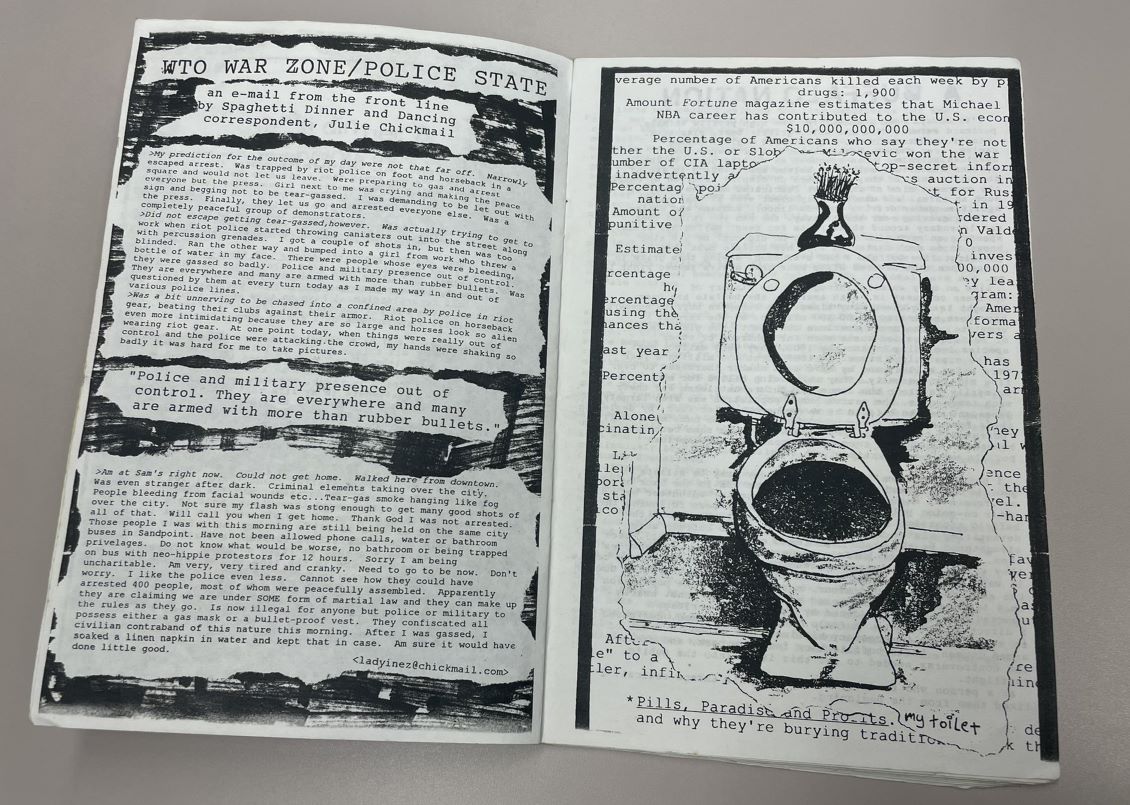 WTO WAR ZONE/POLICE STATE
an e-mail from the front line
by Spaghetti Dinner and Dancing
correspondent, Julie Chickmail
>My prediction for the outcome of my day were not that far off. Narrowly
escaped arrest. Was trapped by riot police on foot and horseback in a
square and would not let us leave. Were preparing to gas and arrest
everyone but the press. Girl next to me was crying and making the peace
sign and begging not to be tear-gassed. I was demanding to be let out with
the press. Finally, they let us go and arrested everyone else. Was a
completely peaceful group of demonstrators.
>Did not escape getting tear-gassed,however. Was actually trying to get to
work when riot police started throwing canisters out into the street along
with percussion grenades. I got a couple of shots in, but then was too
blinded. Ran the other way and bumped into a girl from work who threw a
bottle of water in my face. There were people whose eyes were bleeding,
they were gassed so badly. Police and military presence out of control.
They are everywhere and many are armed with more than rubber bullets. Was
questioned by them at every turn today as I made my way in and out of
various police lines.
>Was a bit unnerving to be chased into a confined area by police in riot
gear, beating their clubs against their armor. Riot police on horseback
even more intimidating because they are so large and horses look so alien
wearing riot gear. At one point today, when things were really out of
control and the police were attacking the crowd, my hands were shaking so
badly it was hard for me to take pictures.
"Police and military presence out of
control. They are everywhere and many
are armed with more than rubber bullets."
>Am at Sam's right now. Could not get home. Walked here from downtown.
Was even stranger after dark. Criminal elements taking over the city.
People bleeding from facial wounds etc...Tear-gas smoke hanging like fog
over the city. Not sure my flash was stong enough to get many good shots of
all of that. Will call you when I get home. Thank God I was not arrested.
Those people I was with this morning are still being held on the same city
buses in Sandpoint. Have not been allowed phone calls, water or bathroom
privelages. Do not know what would be worse, no bathroom or being trapped
on bus with neo-hippie protestors for 12 hours. Sorry I am being
uncharitable. Am very, very tired and cranky. Need to go to be now. Don't
worry. I like the police even less. Cannot see how they could have
arrested 400 people, most of whom were peacefully assembled. Apparently
they are claiming we are under SOME form of martial law and they can make up
the rules as they go. Is now illegal for anyone but police or military to
possess either a gas mask or a bullet-proof vest. They confiscated all
civilian contraband of this nature this morning. After I was gassed, I
soaked a linen napkin in water and kept that in case. Am sure it would have
done little good.
<ladyinez@chickmail.com>
verage number of Americans killed each week by p
drugs: 1,900
Amount Fortune magazine estimates that Michael
NBA career has contributed to the U.S. econ
$10,000,000,000
Percentage of Americans who say they're not
ther the U.S. or Slob Milosevic won the war
umber of CIA lapto op-secret inform
inadvertently a s auction in
Percentag poi t for Russ
nation in 19
Amount o rdered
punitive n Vald
0
Estimate invest
00,000
rcentage ey lea
h gram:
ercentage Amer
using the format
hances tha vers a
ast year has
Percent 197
ar
Alone hey
cinatin
ence
the
sta el.
ico -han
After
e" to a re
ler, infi
*Pills, Paradise and Profits. my toilet
and why they're burying traditio k th